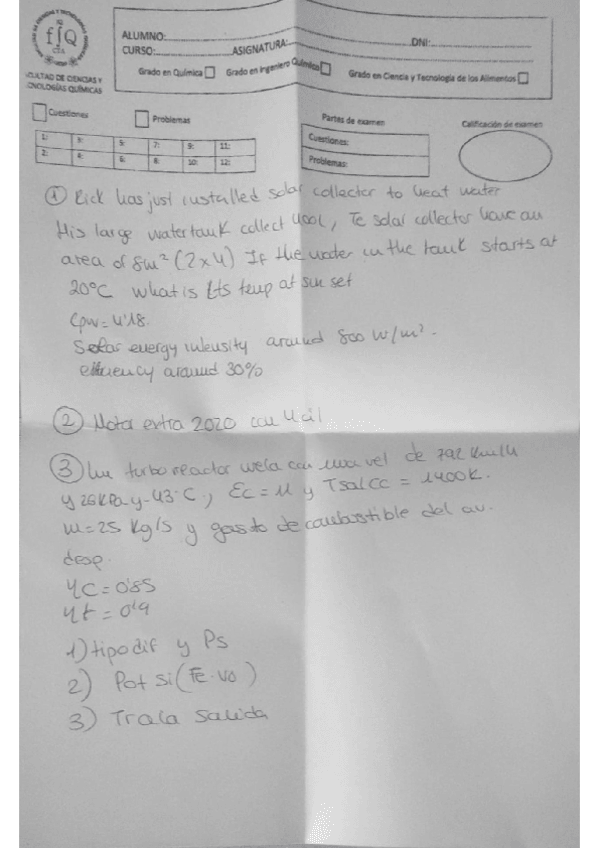 fʃQ
FACULTAD DE CIENCIAS Y
TECNOLOGÍAS QUÍMICAS
ALUMNO:
DNI:
CURSO:
ASIGNATURA:
Grado en Química
Grado en Ingeniero Químico
Grado en Ciencia y Tecnología de los Alimentos
Cuestiones
Problemas
Partes de examen
Calificación de examen
1: 3: 5: 7: 9: 11:
2: 4: 6: 8: 10: 12:
Cuestiones:
Problemas:
① Rick has just installed solar collector to heat water
His large watertank collect 400L, Te solar collector have an
area of 8m² (2x4) If the water in the tank starts at
20ºC what is its temp at sun set
Cpw = 4'18.
Solar energy intensity around 800 W/m².
efficiency around 30%
② Motor extra 2020 con 4 cil
③ Un turbo reactor vuela con una vel de 792 km/h
y 26 kPa y -43ºC, Ec = 11 y Tsal CC = 1400K.
m = 25 kg/s y gasto de combustible del av.
desp.
ηC = 0'85
ηt = 0'9
1) tipo dif y Ps
2) Pot si (FE·vo)
3) Tra la salida